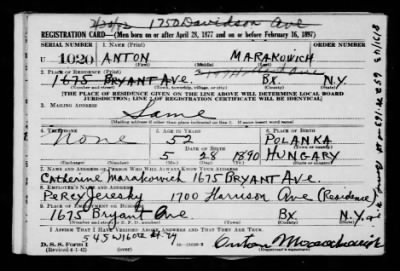 1750 Davidson Ave
REGISTRATION CARD—(Men born on or after April 28, 1877 and on or before February 16, 1897)
SERIAL NUMBER
1. NAME (Print)
U 1020 ANTON MARAKOWICH
2. PLACE OF RESIDENCE (Print)
1675 BRYANT AVE. BX. N.Y.
[THE PLACE OF RESIDENCE GIVEN ON THE LINE ABOVE WILL DETERMINE LOCAL BOARD
JURISDICTION; LINE 2 OF REGISTRATION CERTIFICATE WILL BE IDENTICAL]
3. MAILING ADDRESS
Same
[Mailing address if other than place indicated on line 2. If same insert word same]
4. TELEPHONE
5. AGE IN YEARS
6. PLACE OF BIRTH
None 52 POLANKA
DATE OF BIRTH
5 28 1890 HUNGARY
7. NAME AND ADDRESS OF PERSON WHO WILL ALWAYS KNOW YOUR ADDRESS
Catherine Marakowich 1675 BRYANT AVE.
8. EMPLOYER'S NAME AND ADDRESS
Percy Jeresky 1700 Harrison Ave (Residence)
9. PLACE OF EMPLOYMENT OR BUSINESS
1675 Bryant Ave BX. N.Y.
I AFFIRM THAT I HAVE VERIFIED ABOVE ANSWERS AND THAT THEY ARE TRUE.
D. S. S. Form 1
(Revised 4-1-42)
Anton Marakowich